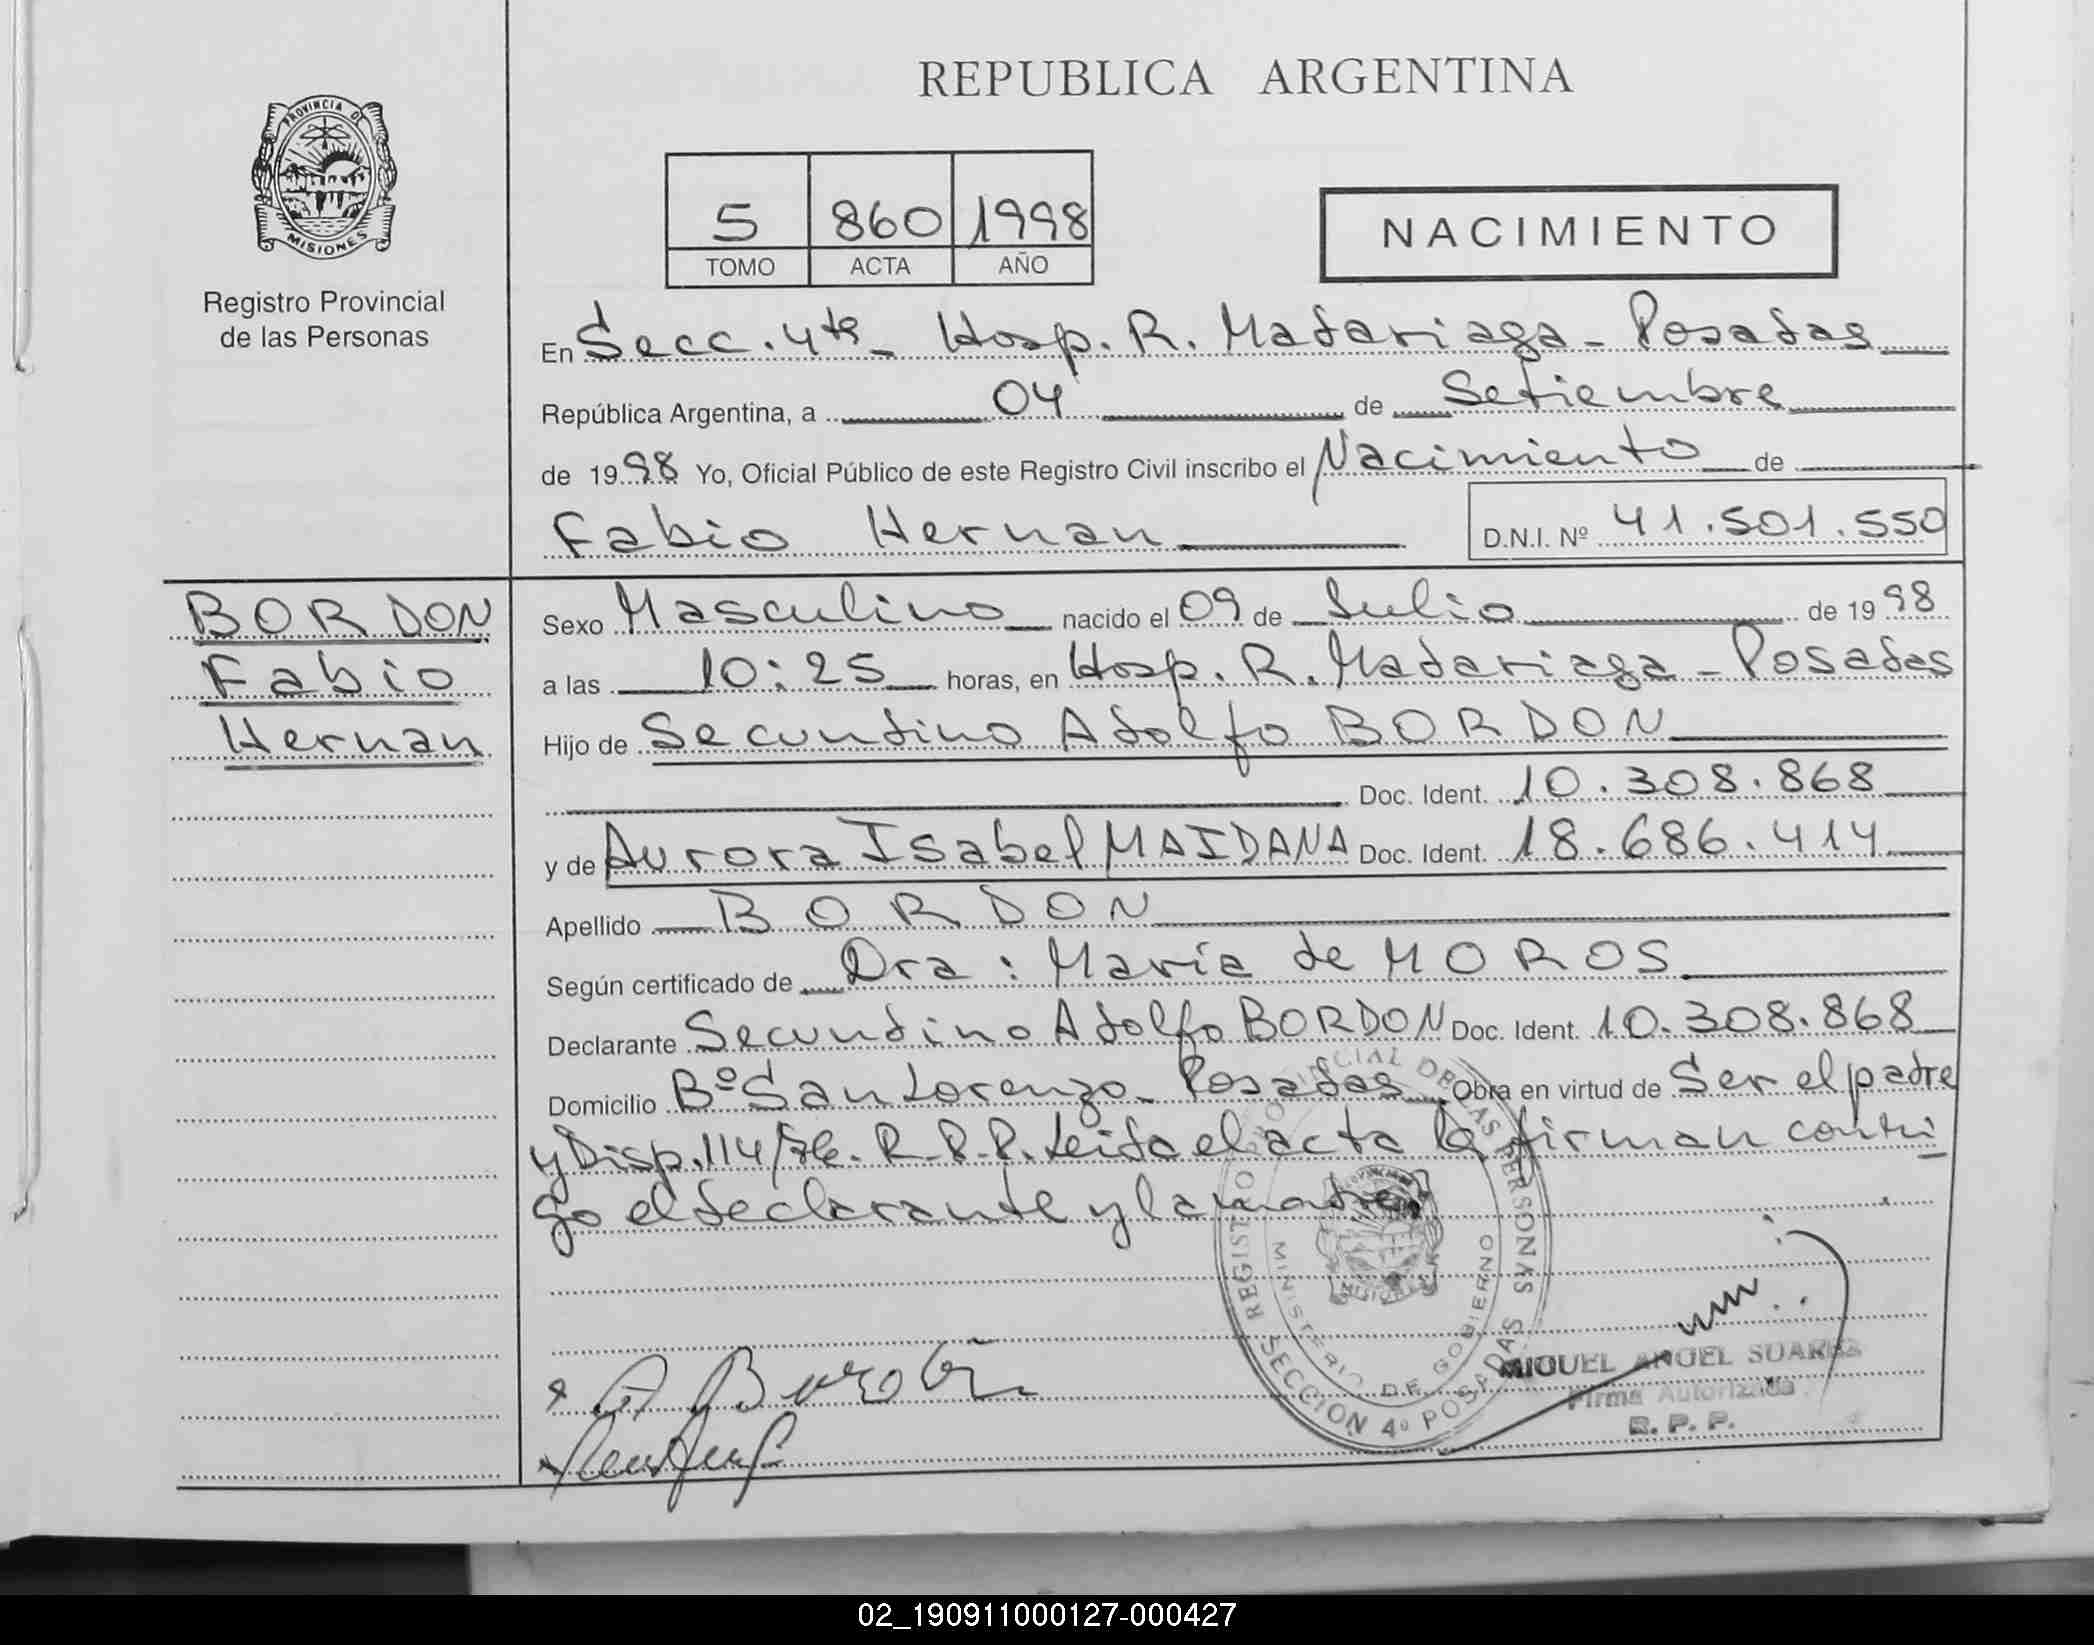 REPUBLICA ARGENTINA
PROVINCIA DE
MISIONES
Registro Provincial
de las Personas
5 860 1998
TOMO ACTA AÑO
NACIMIENTO
En Secc. 4ta - Hosp. R. Madariaga - Posadas
República Argentina, a 04 de Setiembre
de 1998 Yo, Oficial Público de este Registro Civil inscribo el Nacimiento de
Fabio Hernan D.N.I. Nº 41.501.550
BORDON
Fabio
Hernan
Sexo Masculino nacido el 09 de Julio de 1998
a las 10:25 horas, en Hosp. R. Madariaga - Posadas
Hijo de Secundino Adolfo BORDON
Doc. Ident. 10.308.868
y de Aurora Isabel MAIDANA Doc. Ident. 18.686.414
Apellido BORDON
Según certificado de Dra: María de MOROS
Declarante Secundino Adolfo BORDON Doc. Ident. 10.308.868
Domicilio Bº San Lorenzo - Posadas Obra en virtud de Ser el padre
y Disp. 114/ R.P.P. Leida el acta la firman conmi
go el declarante y la madre
REGISTRO PROVINCIAL DE LAS PERSONAS
MINISTERIO DE GOBIERNO
SECCION 4º POSADAS
MIGUEL ANGEL SUAREZ
Firma Autorizada
R. P. P.
02_190911000127-000427